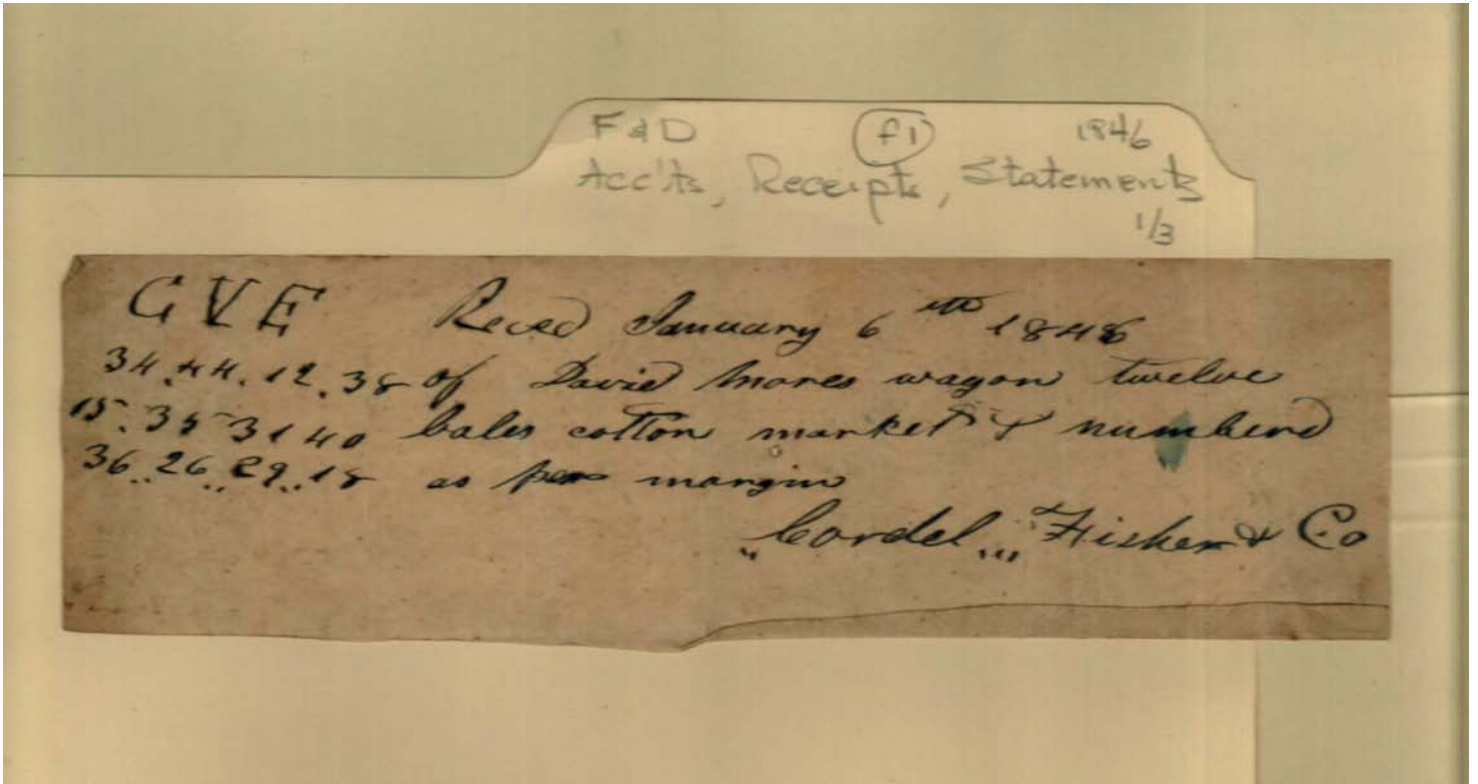 F&D (f1) 1846
Acc'ts, Receipts, Statements
1/3
GVE Reced January 6th 1846
34.44.12.38 of David Mores wagon twelve
15.35 31 40 bales cotton market & numberd
36..26..29..18 as per margin
"Cordel,,, Fisher & Co